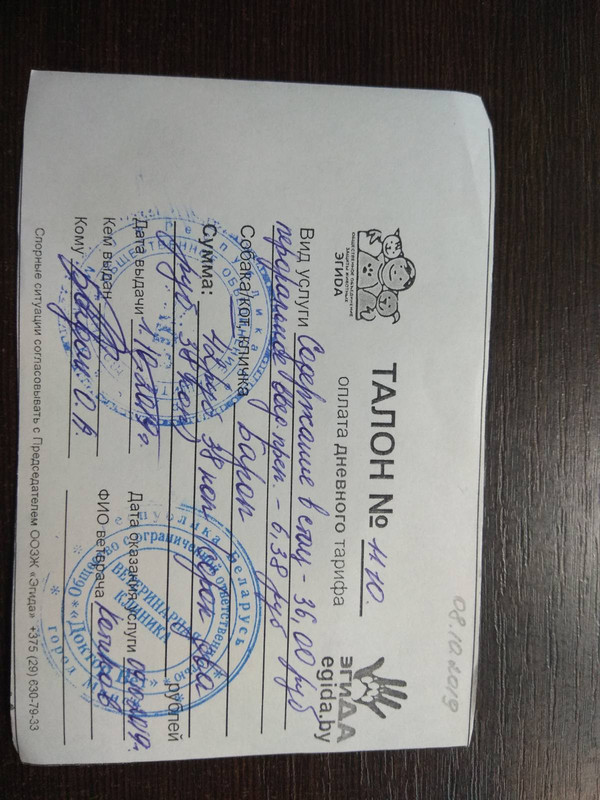 08.10.2019
ОБЩЕСТВЕННОЕ ОБЪЕДИНЕНИЕ
ЗАЩИТЫ ЖИВОТНЫХ
ЭГИДА
ТАЛОН № 1170.
оплата дневного тарифа
ЭГИДА
egida.by
Вид услуги Содержание в стац - 36,00 руб
- 6,38 руб
Собака/кот, кличка Барон
Сумма: 42 руб 38 коп (сорок два
руб 38 коп) рублей
Дата выдачи 1.10.2019г. Дата оказания услуги 09.10.2019г.
Кем выдан ФИО ветврача
Кому О.А.
Спорные ситуации согласовывать с Председателем ООЗЖ «Эгида» +375 (29) 630-79-33
Республика Беларусь
Общество с ограниченной ответственностью
ВЕТЕРИНАРНАЯ
КЛИНИКА